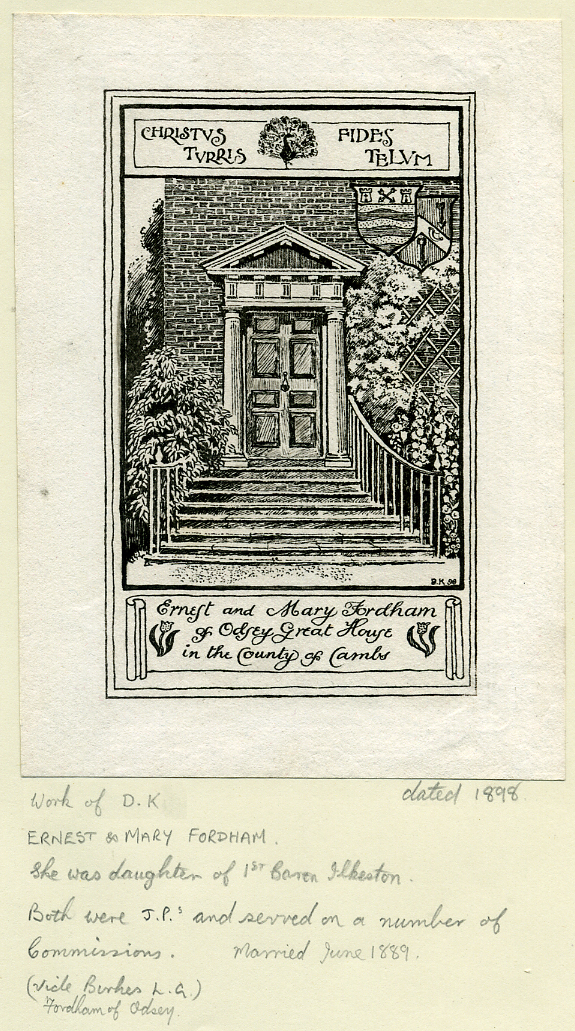 CHRISTVS FIDES
TVRRIS TELVM
D.K 98
Ernest and Mary Fordham
of Odsey Great House
in the County of Cambs
Work of D.K dated 1898
ERNEST & MARY FORDHAM.
She was daughter of 1ST Baron Ilkeston.
Both were J.P.s and served on a number of
Commissions. Married June 1889.
(Vide Burkes L.G.)
Fordham of Odsey.